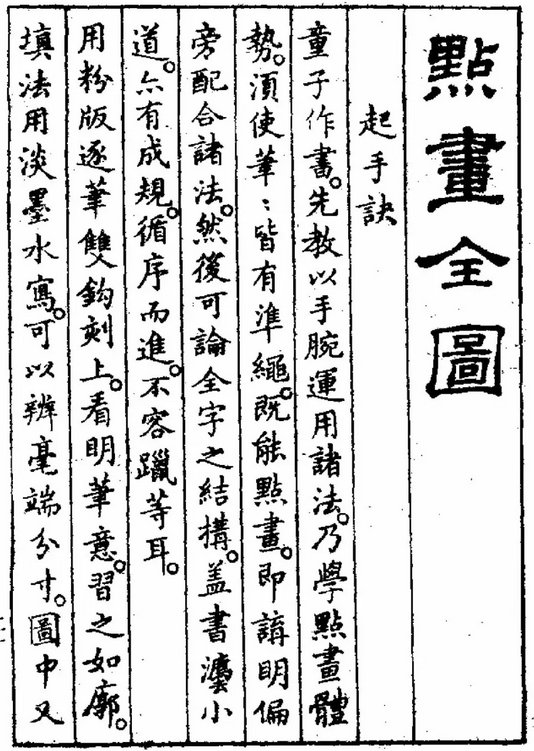 點畫全圖
起手訣
童子作書。先教以手腕運用諸法。乃學點畫體
勢。須使筆〻皆有準繩。既能點畫。即講明偏
旁配合諸法。然後可論全字之結搆。盖書灋小
道。亦有成規。循序而進。不容躐等耳。
用粉版逐筆雙鈎刻上。看明筆意。習之如廓。
填法用淡墨水寫。可以辨毫端分寸。圖中又